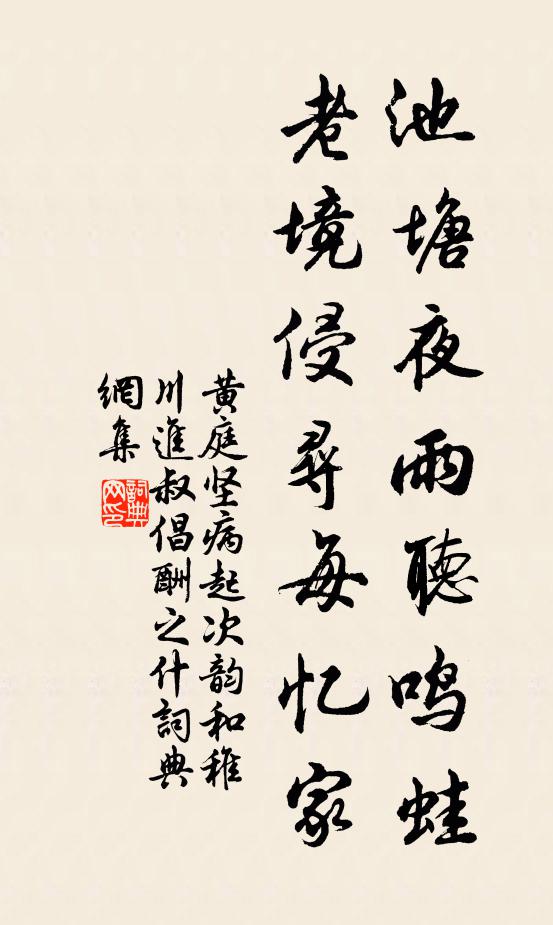 池塘夜雨聽鸣蛙
老境侵尋每忆家
黄庭坚病起次韵和稚
川進叔倡酬之什詞典
網集
詞典网印